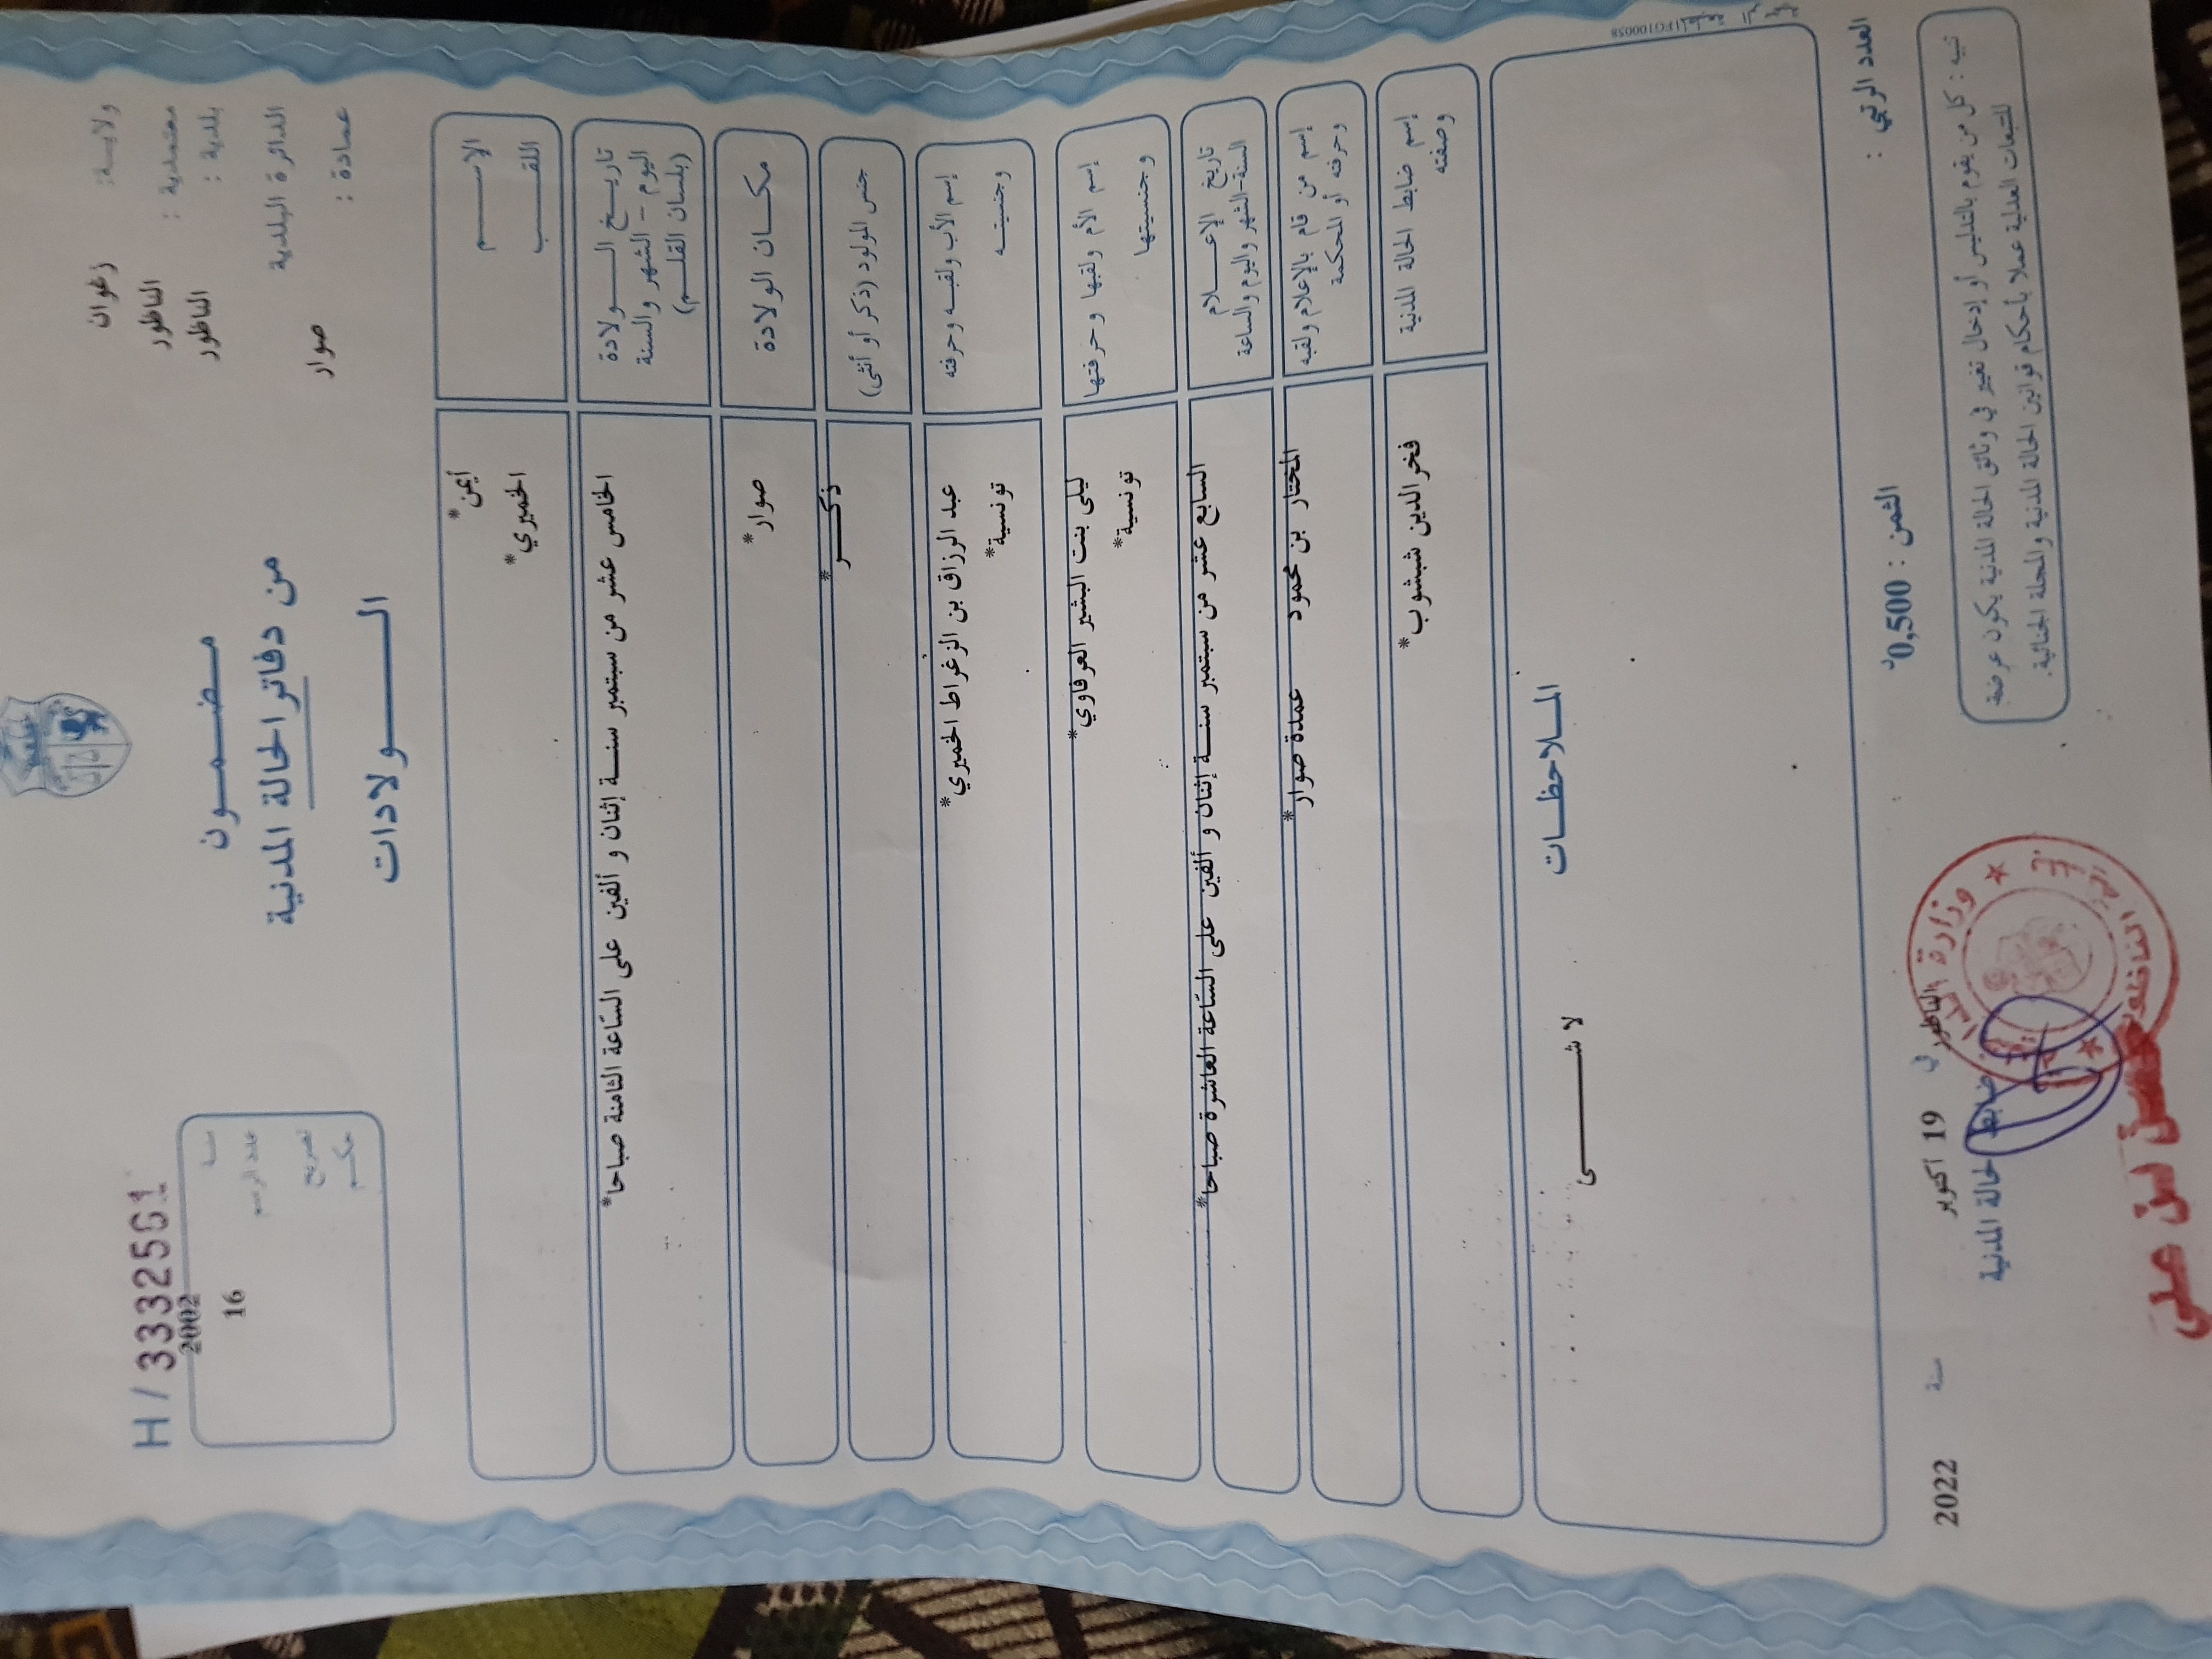 ولايــة: زغوان
معتمدية : الناظور
بلدية : الناظور
الدائرة البلدية
عمادة : صوار
مـضـمـــون
من دفاتر الحالة المدنية
الـــــولادات
H / 33325
2002 سنـة
16 عدد الرسم
تصريح
حكـــم
الاســـــم أيمن*
اللقـــب الخميري*
تاريــخ الـــولادة
اليوم – الشهر والسنة
(بلسان القلــم)
الخامس عشر من سبتمبر سنــة إثنان و ألفين على السّاعة الثامنة صباحا*
مكــان الولادة صوار*
جنس المولود (ذكر أو أنثى) ذكـــر*
إسم الأب ولقبــه وحرفته عبد الرزاق بن الزغراط الخميري*
وجنسيتــه تونسية*
إسم الأم ولقبها وحرفتها ليلى بنت البشير العرفاوي*
وجنسيتها تونسية*
تاريخ الإعـــلام
السنة-الشهر واليوم والساعة
السابع عشر من سبتمبر سنــة إثنان و ألفين على السّاعة العاشرة صباحا*
إسم من قام بالإعلام ولقبه
وحرفته أو المحكمة
المختار بن محمود عمدة صوار*
إسم ضابط الحالة المدنية
وصفته
فخرالدين شبشوب*
المــلاحظــات
لا شـــــــى
FG100058
العدد الرتبي :
الثمن : 0,500د
الناظور في 19 أكتوبر سنة 2022
ضابط الحالة المدنية
تنبيه : كل من يقوم بالتدليس أو إدخال تغيير في وثائق الحالة المدنية يكون عرضة
للتبعات العدلية عملا بأحكام قوانين الحالة المدنية والمجلة الجنائية.
وزارة
بن علي